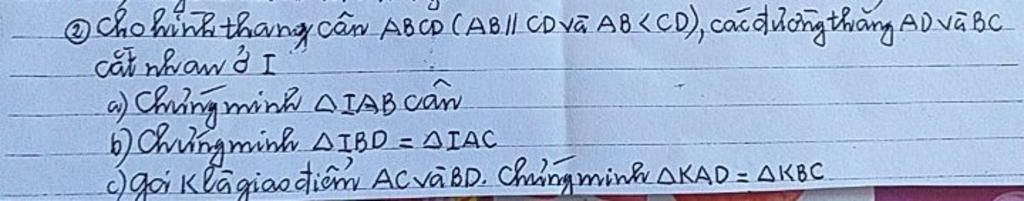 ② Cho hình thang cân ABCD (AB // CD và AB < CD), các đường thẳng AD và BC
cắt nhau ở I
a) Chứng minh ΔIAB cân
b) Chứng minh ΔIBD = ΔIAC
c) gọi K là giao điểm AC và BD. Chứng minh ΔKAD = ΔKBC